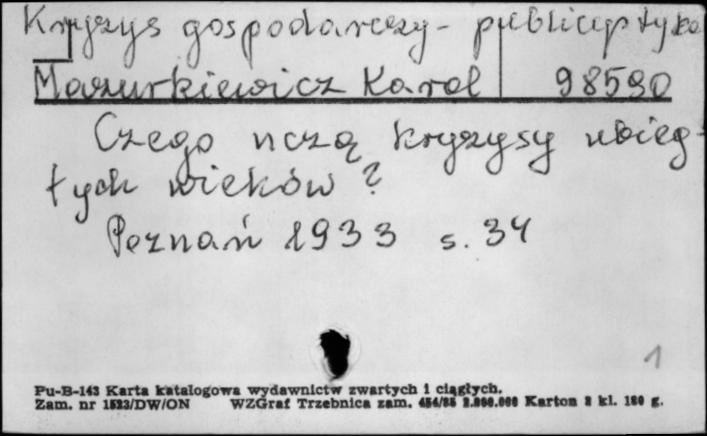 Kryzys gospodarczy - publicystyka
Mazurkiewicz Karol 98590
Czego uczą kryzysy ubieg-
łych wieków?
Poznań 1933 s. 34
1
Pu-B-143 Karta katalogowa wydawnictw zwartych i ciągłych.
Zam. nr 1523/DW/ON WZGraf Trzebnica zam. 454/85 2.000.000 Karton 2 kl. 180 g.